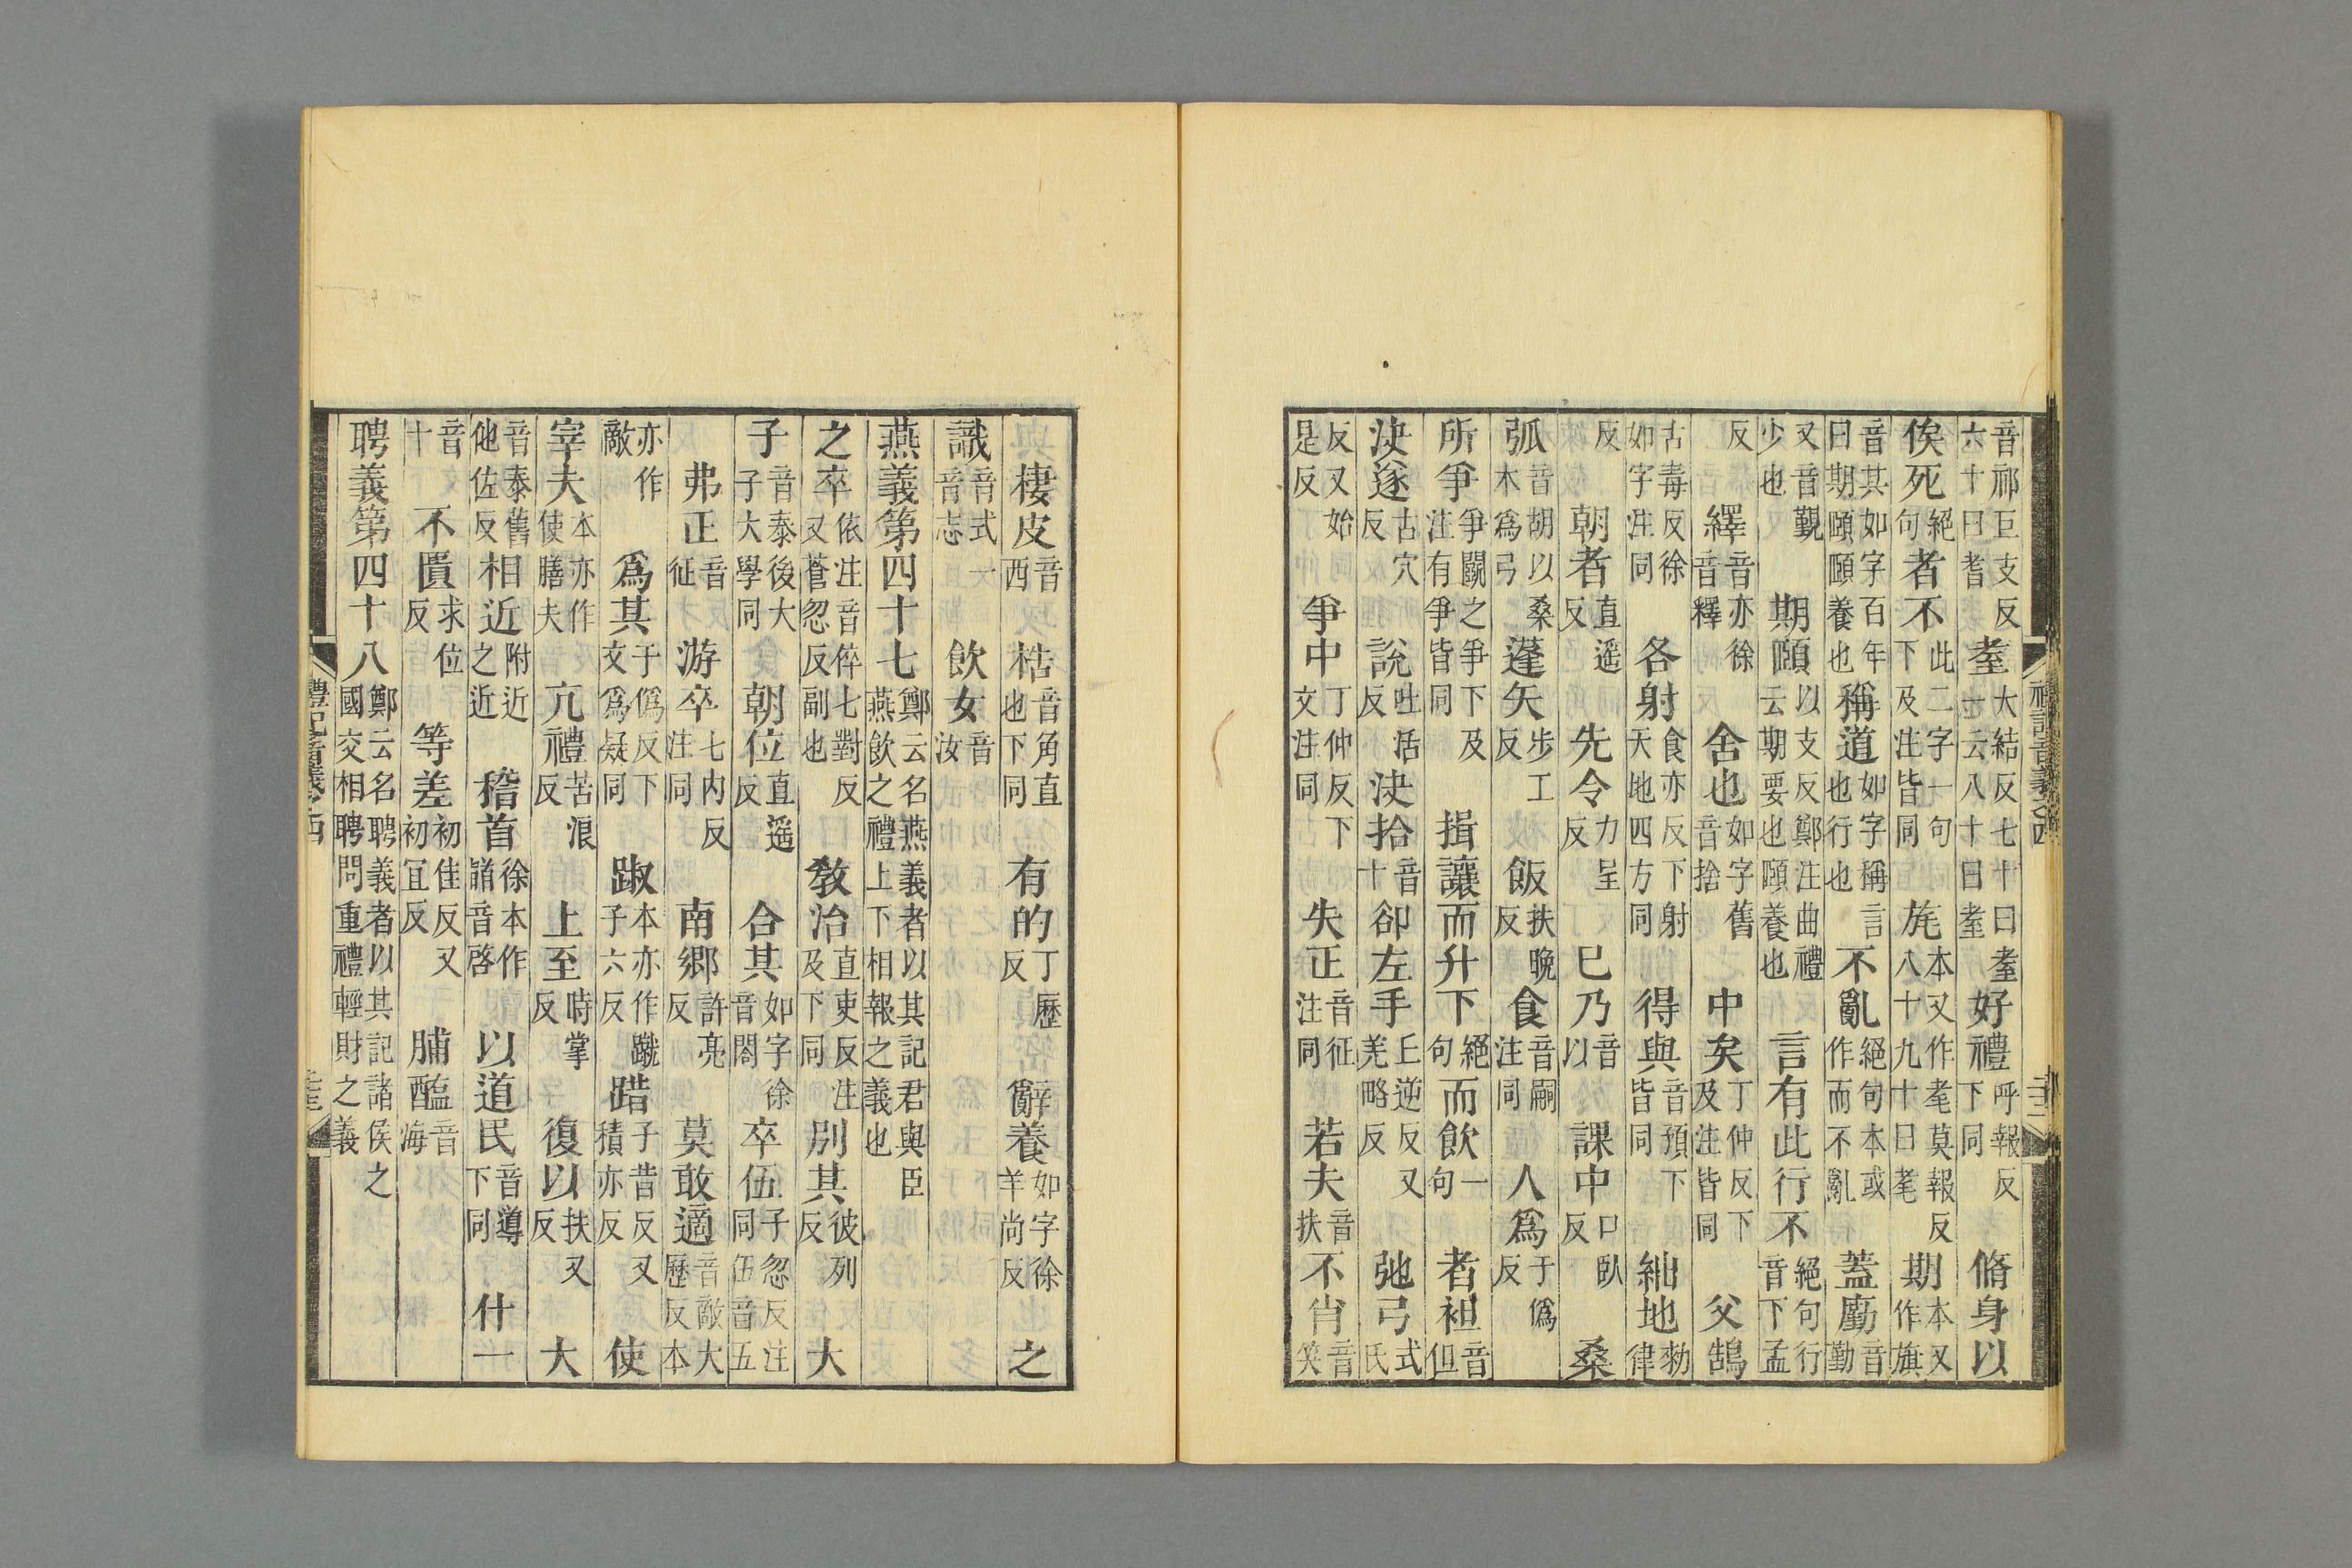 音祁巨支反六十曰耆 耋大結反七十曰耋一云八十曰耋 好禮呼報反下同 脩身以
俟死絕句 者不此二字一句下及注皆同 旄本又作耄莫報反八十九十曰耄 期本又作旗
音其如字百年曰期頤頤養也 稱道如字稱言也行也 不亂絕句本或作而不亂 蓋勴音勤
又音覲少也 期頤以支反鄭注曲禮云期要也頤養也 言有此行不絕句行音下孟
反 繹音亦徐音釋 舍也如字舊音捨 中矣丁仲反下及注皆同 父鵠
古毒反徐如字注同 各射食亦反下射天地四方同 得與音預下皆同 紬地勑律
反 朝者直遥反 先令力呈反 巳乃音以 課中口臥反 桑
弧音胡以桑木爲弓 蓬矢步工反 飯扶晚反 食音嗣注同 人爲于僞反
所爭爭鬬之爭下及注有爭皆同 揖讓而升下絕句 而飲一句 者袒音但
決遂古穴反 說吐活反 決拾音十 卻左手丘逆反又羌略反 弛弓式氏
反又始是反 爭中丁仲反下文注同 失正音征注同 若夫音扶 不肖音笑
棲皮音西 梏音角直也下同 有的丁歷反 辭養如字徐羊尚反 之
識音式一音志 飲女音汝
燕義第四十七鄭云名燕義者以其記君與臣燕飲之禮上下相報之義也
之卒依注音倅七對反又蒼忽反副也 教治直吏反注及下同 別其彼列反 大
子音泰後大子大學同 朝位直遥反 合其如字徐音閤 卒伍子忽反注同伍音五
弗正音征 游卒七内反注同 南鄉許亮反 莫敢適音敵大歷反本
亦作敵 爲其于僞反下文爲疑同 踧本亦作蹴子六反 踖子昔反又積亦反 使
宰夫本亦作使膳夫 亢禮苦浪反 上至時掌反 復以扶又反 大
音泰舊他佐反 相近附近之近 稽首徐本作䭫音啓 以道民音導下同 什一
音十 不匱求位反 等差初佳反又初宜反 脯醢音海
聘義第四十八鄭云名聘義者以其記諸侯之國交相聘問重禮輕財之義